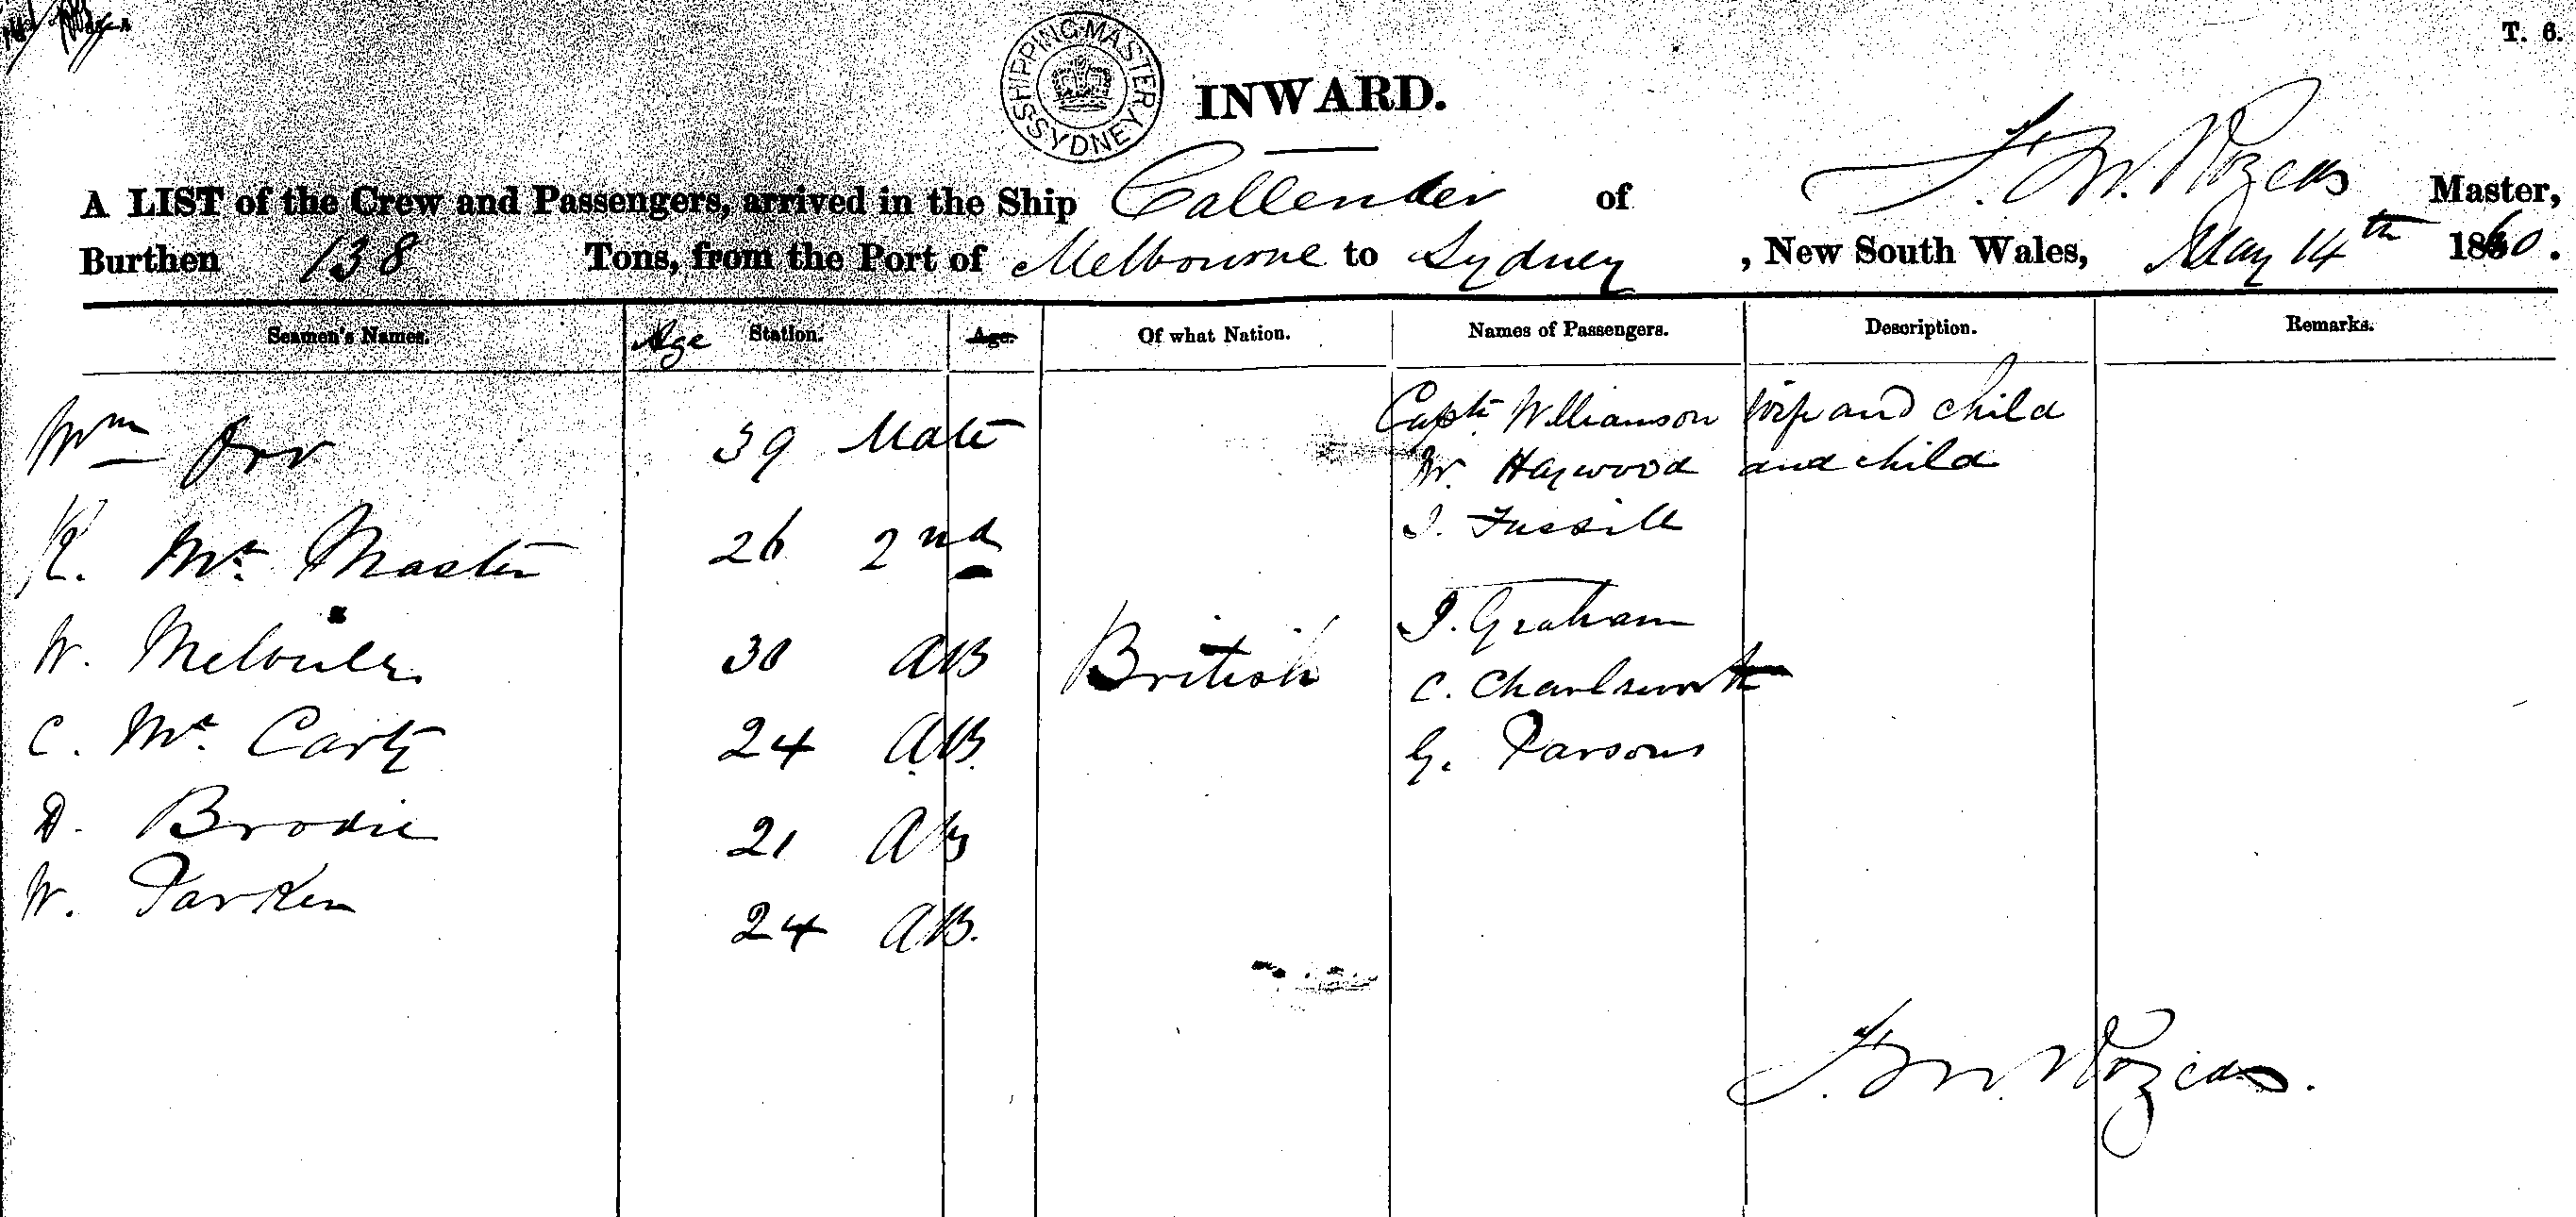 T. 6.
SHIPPING MASTER SYDNEY
INWARD.
A LIST of the Crew and Passengers, arrived in the Ship Callender of F. W. Master,
Burthen 138 Tons, from the Port of Melbourne to Sydney, New South Wales, May 14th 1860.
Seamen's Names. Age Station. Age. Of what Nation. Names of Passengers. Description. Remarks.
Wm Orr 39 Mate Captn Williamson wife and child
W. Haywood and child
R. Mc Master 26 2nd J. Fussill
W. Melville 30 AB British J. Graham
C. Charlsworth
C. Mc Carty 24 A.B. G. Parsons
D. Brodie 21 AB
W. Parker 24 AB.
F. W.